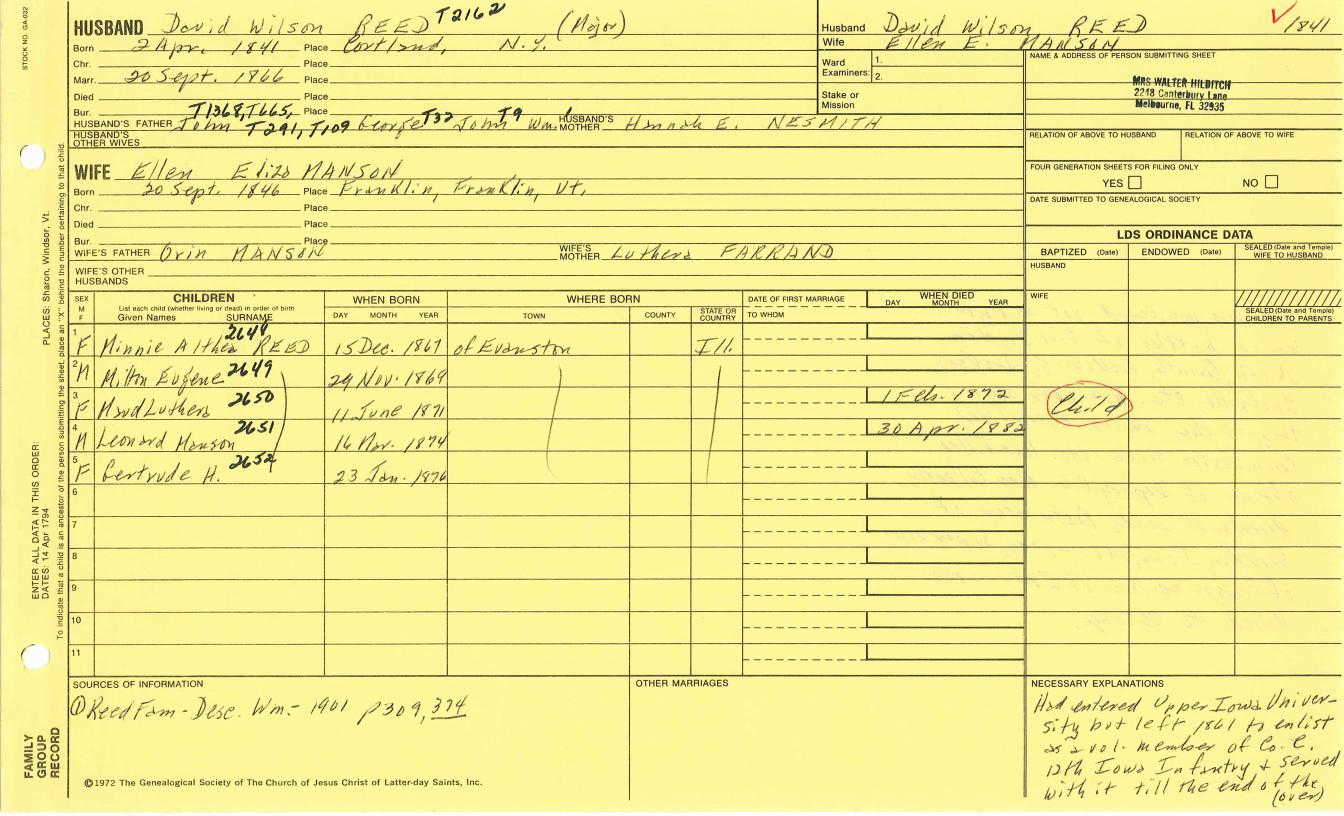 STOCK NO. GA-032
HUSBAND David Wilson REED T2162 (Major)
Born 2 Apr. 1841 Place Cortland, N.Y.
Chr. Place
Marr. 20 Sept. 1866 Place
Died Place
Bur. T1368, T665, Place
HUSBAND'S FATHER John T291, T109 George T32 John T9 Wm. HUSBAND'S MOTHER Hannah E. NESMITH
HUSBAND'S OTHER WIVES
WIFE Ellen Eliza MANSON
Born 20 Sept. 1846 Place Franklin, Franklin, Vt.
Chr. Place
Died Place
Bur. Place
WIFE'S FATHER Orin MANSON WIFE'S MOTHER Luthera FARRAND
WIFE'S OTHER HUSBANDS
Husband David Wilson REED ✓1841
Wife Ellen E. MANSON
Ward Examiners: 1.
2.
Stake or Mission
NAME & ADDRESS OF PERSON SUBMITTING SHEET
MRS WALTER HILDITCH
2248 Canterbury Lane
Melbourne, FL 32935
RELATION OF ABOVE TO HUSBAND RELATION OF ABOVE TO WIFE
FOUR GENERATION SHEETS FOR FILING ONLY
YES NO
DATE SUBMITTED TO GENEALOGICAL SOCIETY
LDS ORDINANCE DATA
BAPTIZED (Date) ENDOWED (Date) SEALED (Date and Temple) WIFE TO HUSBAND
HUSBAND
WIFE
SEALED (Date and Temple) CHILDREN TO PARENTS
SEX M F CHILDREN WHEN BORN WHERE BORN DATE OF FIRST MARRIAGE WHEN DIED
List each child (whether living or dead) in order of birth
Given Names SURNAME DAY MONTH YEAR TOWN COUNTY STATE OR COUNTRY TO WHOM DAY MONTH YEAR
1 F Minnie Althea REED 2648 15 Dec. 1867 of Evanston Ill.
2 M Milton Eugene 2649 29 Nov. 1869
3 F Maud Luthera 2650 11 June 1871 1 Feb. 1872 Child
4 M Leonard Manson 2651 16 Mar. 1874 30 Apr. 1882
5 F Gertrude H. 2652 23 Jan. 1876
6
7
8
9
10
11
SOURCES OF INFORMATION
① Reed Fam - Desc. Wm. - 1901 p309, 374
©1972 The Genealogical Society of The Church of Jesus Christ of Latter-day Saints, Inc.
OTHER MARRIAGES
NECESSARY EXPLANATIONS
Had entered Upper Iowa Univer-
sity but left 1861 to enlist
as a vol. member of Co. C.
12th Iowa Infantry & served
with it till the end of the
(over)
FAMILY GROUP RECORD
ENTER ALL DATA IN THIS ORDER:
DATES: 14 Apr 1794
PLACES: Sharon, Windsor, Vt.
To indicate that a child is an ancestor of the person submitting the sheet, place an "X" behind the number pertaining to that child.